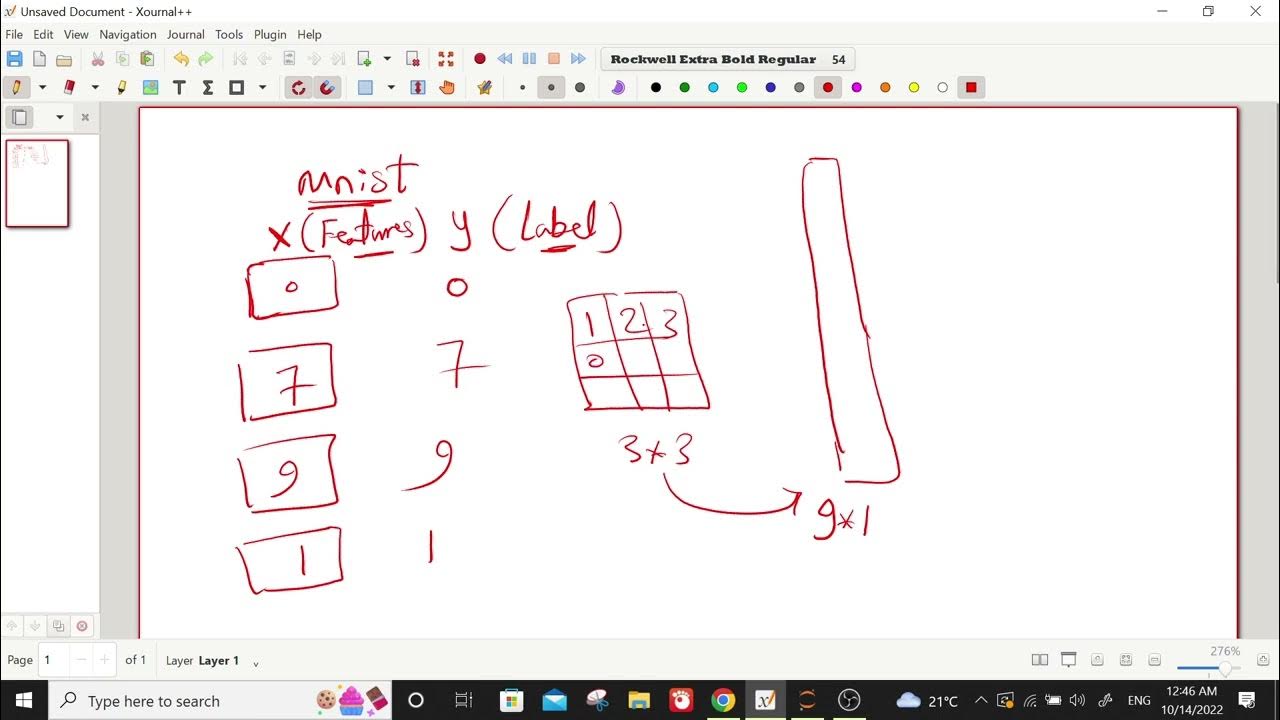 Unsaved Document - Xournal++
File Edit View Navigation Journal Tools Plugin Help
Rockwell Extra Bold Regular 54
mnist
x (Features) y (Label)
0 0
7 7
9 9
1 1
1 2 3
0
3*3
9*1
Page 1 of 1 Layer Layer 1
276%
Type here to search
21°C ENG
12:46 AM
10/14/2022